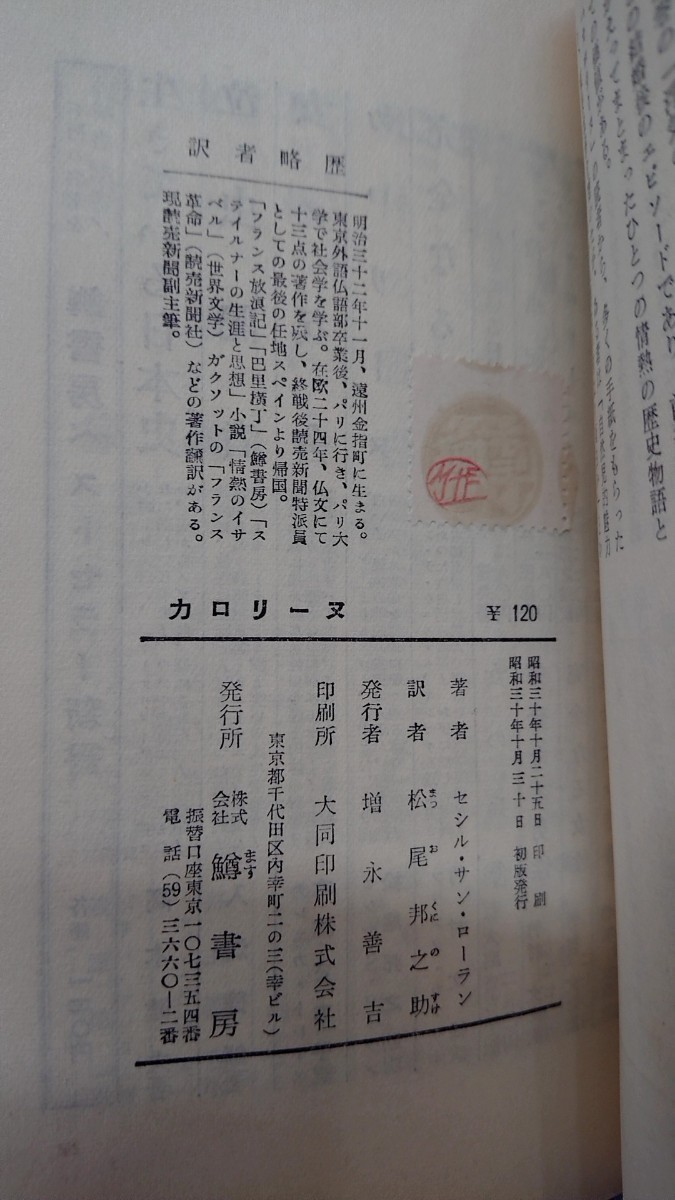 訳者略歴
明治三十二年十一月、遠州金指町に生まる。
東京外語仏語部卒業後、パリに行き、パリ大
学で社会学を学ぶ。在欧二十四年、仏文にて
十三点の著作を成し、終戦後読売新聞特派員
としての最後の任地スペインより帰国。
「フランス放浪記」「巴里横丁」(鱒書房)「ス
テイルナーの生涯と思想」小説「情熱のイサ
ベル」(世界文学)ガクソットの「フランス
革命」(読売新聞社)などの著作飜訳がある。
現読売新聞副主筆。
カロリーヌ
¥120
昭和三十年十月二十五日 印刷
昭和三十年十月三十日 初版発行
著者 セシル・サン・ローラン
訳者 松尾邦之助
まつ お くに の すけ
発行者 増永善吉
印刷所 大同印刷株式会社
東京都千代田区内幸町二の三(幸ビル)
発行所 株式会社 鱒書房
ます
振替口座東京一〇七三五四番
電話(59)三六六〇―二番
のエピソードであり
まったひとつの情熱の歴史物語と
くの手紙をもらった